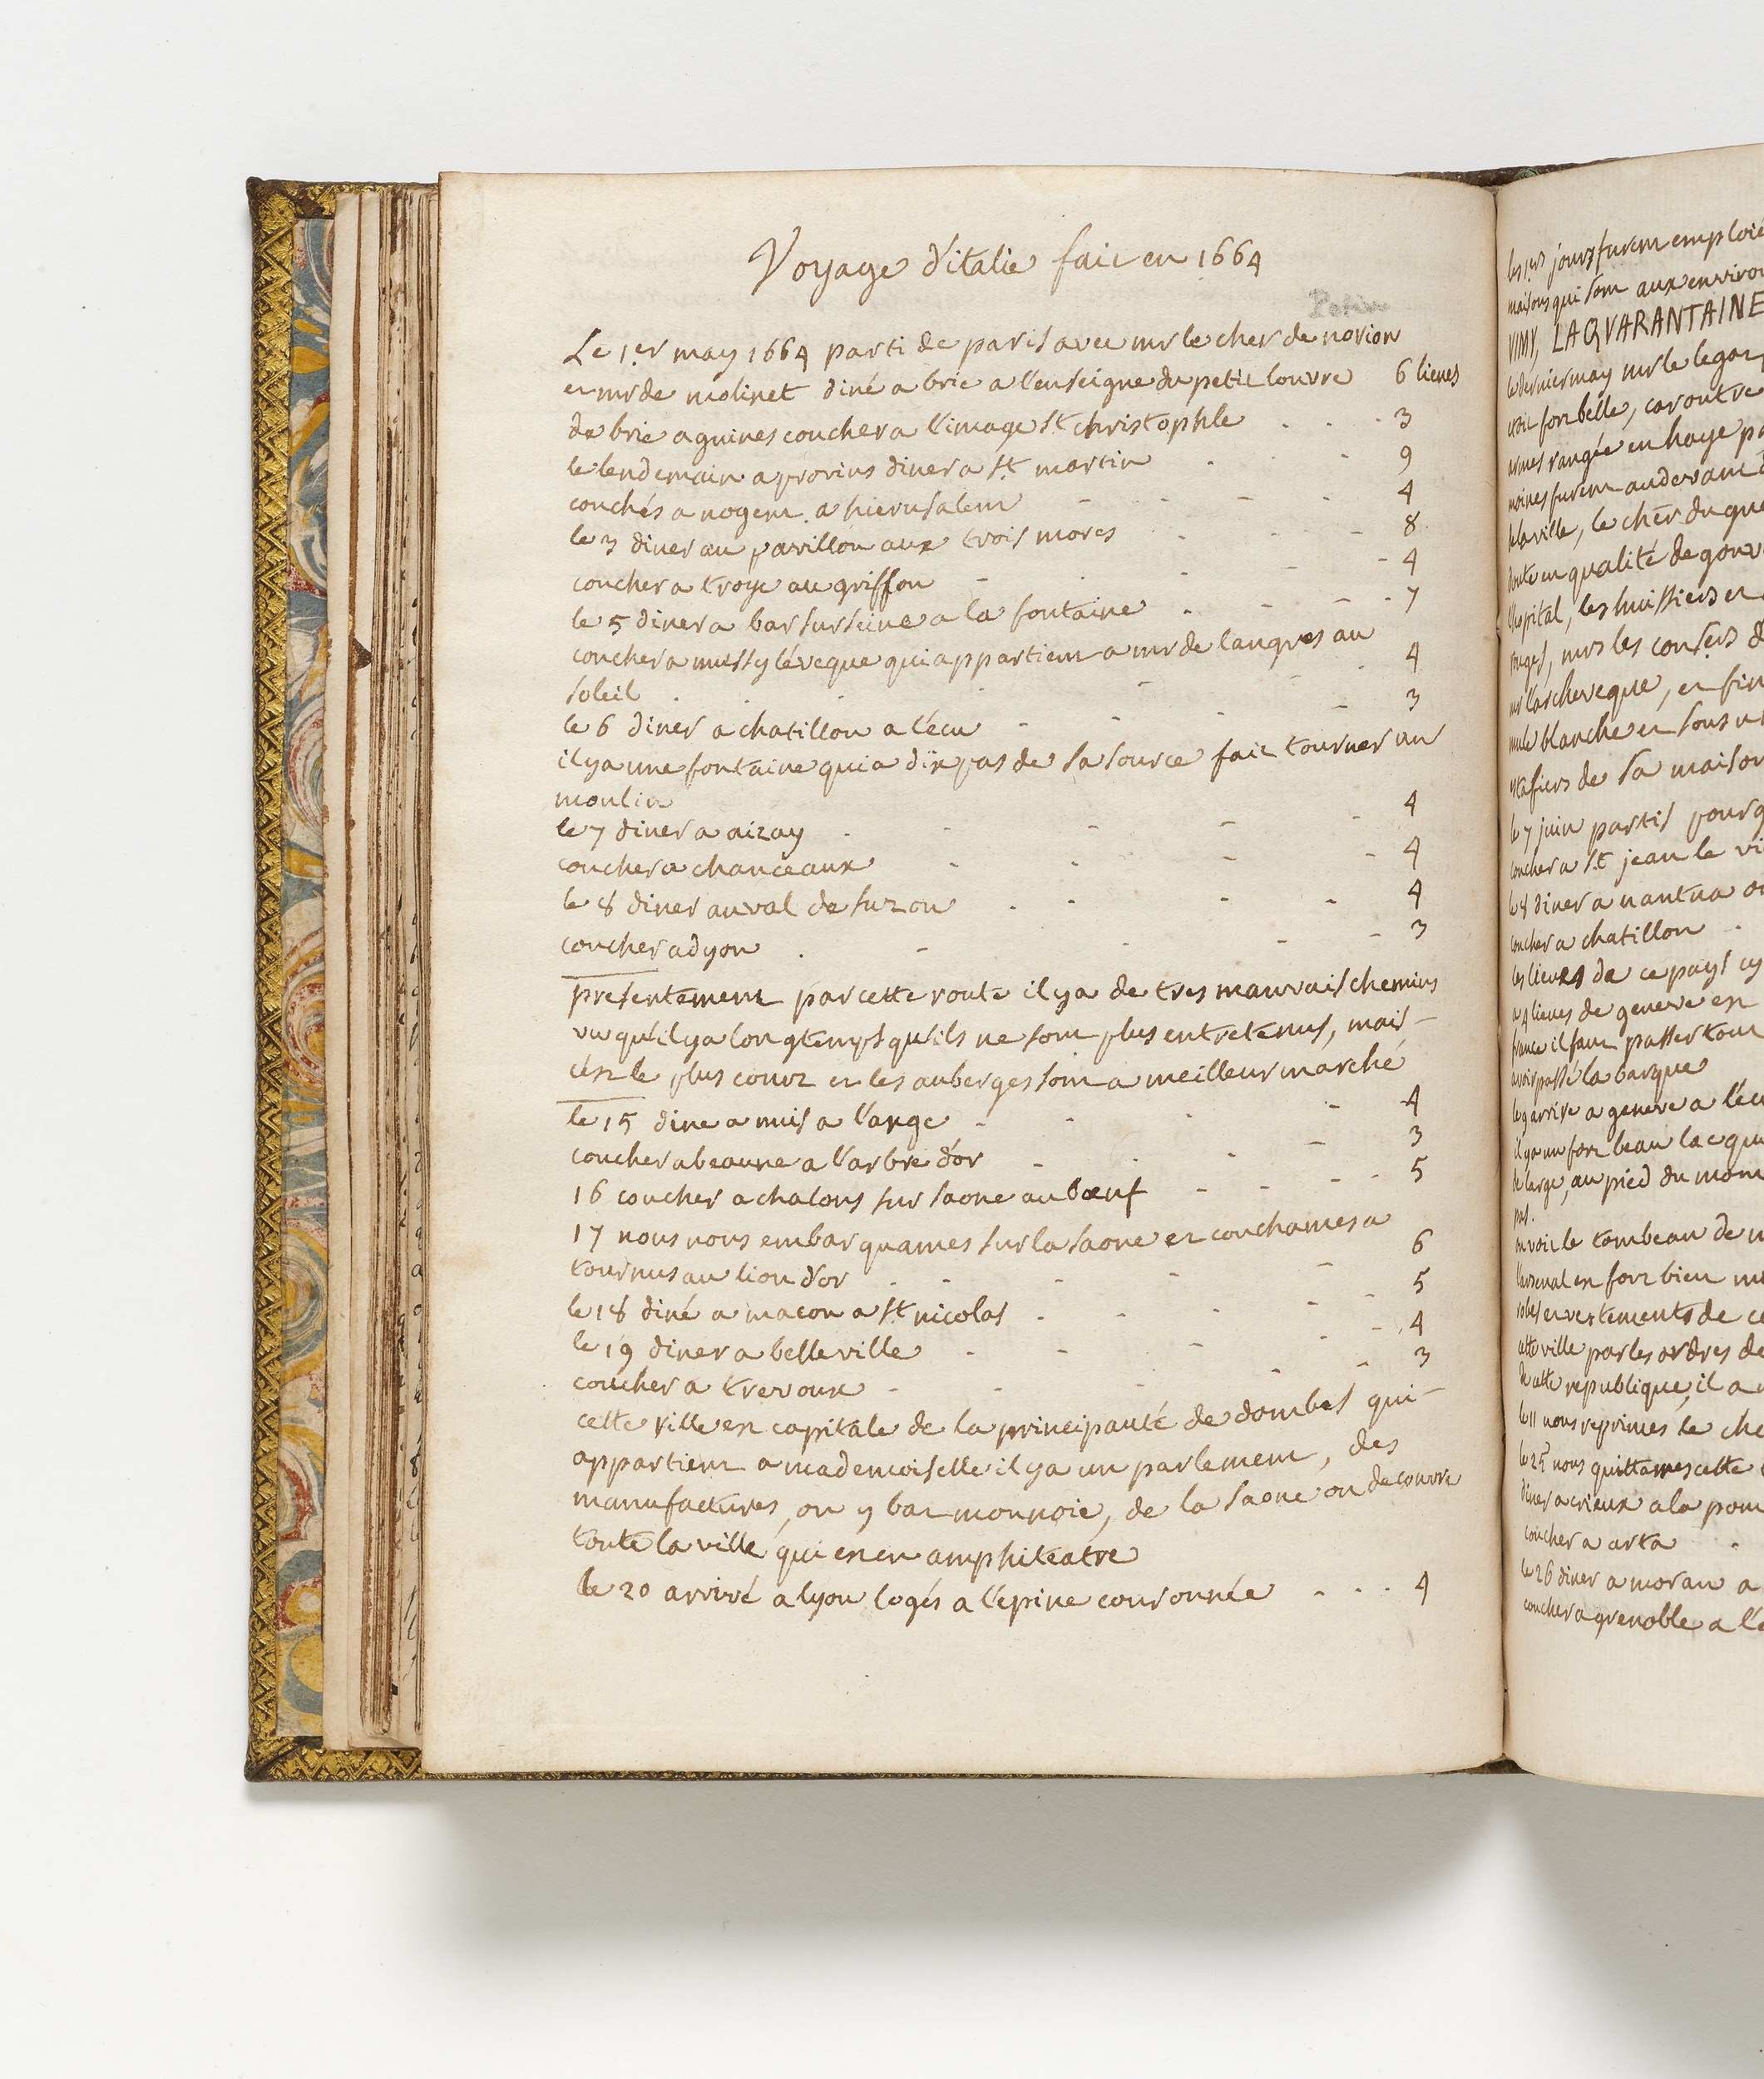 Voyage d'italie fait en 1664
Le 1er may 1664 parti de paris avec mr le cher de novion
et mr de molinet diné a brie a l'enseigne du petit louvre 6 lieues
de brie a guines coucher a l'image st christophle 3
le lendemain a provins diner a st martin 9
couchés a nogent a hierusalem 4
le 3 diner au pavillon aux trois mores 8
coucher a troye au griffon 4
le 5 diner a bar sur seine a la fontaine 7
coucher a mussy léveque qui appartient a mr de langres au
soleil 4
le 6 diner a chatillon a lécu 3
il ya une fontaine qui a dix pas de sa source fait tourner un
moulin
le 7 diner a aizay 4
coucher a chanceaux 4
le 8 diner au val de suzon 4
coucher a dyon 3
presentement par cette route il ya de tres mauvais chemins
vu qu'il ya longtemps qu'ils ne sont plus entretenus, mais
c'est le plus court et les auberges sont a meilleur marché
le 15 dine a nuis a l'ange 4
coucher a beaune a l'arbre d'or 3
16 coucher a chalons sur saone au bœuf 5
17 nous nous embarquames sur la saone et couchames a
tournus au lion d'or 6
le 18 diné a macon a st nicolas 5
le 19 diner a belleville 4
coucher a trevoux 3
cette ville est capitale de la principauté de dombes qui
appartient a mademoiselle il ya un parlement, des
manufactures, on y bat monnoie, de la saone on decouvre
toute la ville qui est en amphiteatre
le 20 arrivé a lyon logés a l'épine couronnée 4
les 1ers jours furent emploié
maisons qui sont aux environ
VIMY, LA QVARANTAINE
le dernier may mr le legat
fort belle, car outre
armes rangée en haye
moines furent au devant
de la ville, le cher du
en qualité de gouv
l'hopital, les huissiers et
rouges, mrs les consers
mr l'archeveque, et fin
mule blanche et sous
estafiers de sa maison
le 7 juin partis pour
coucher a st jean le vi
le 8 diner a nantua
coucher a chatillon
les lieues de ce pays cy
a 4 lieues de geneve est
france il faut passer tout
avoir passé la barque
le 9 arrive a geneve a l'écu
il ya un fort beau lac qui
de large, au pied du mont
pas.
on voit le tombeau de
l'arsenal est fort bien
robes et vetements de ce
cette ville par les ordres de
de cette republique, il a
le 11 nous reprimes le che
le 25 nous quittames cette
diner a crieux a la pom
coucher a arta
le 26 diner a moran a
coucher a grenoble a l'é